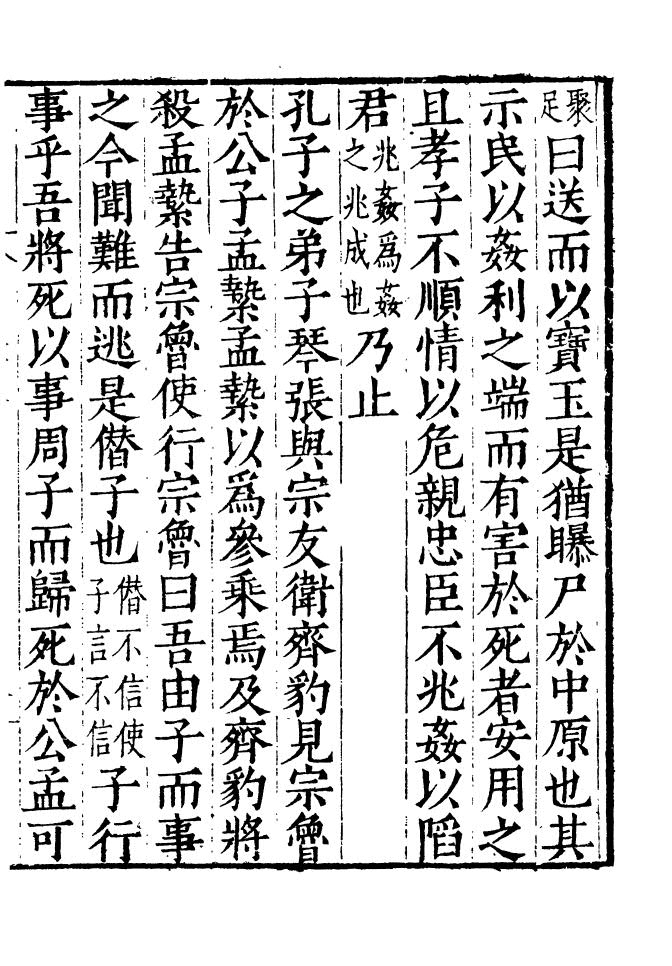 聚足曰送而以寶玉是猶曝尸於中原也其
示民以姦利之端而有害於死者安用之
且孝子不順情以危親忠臣不兆姦以䧟
君兆姦爲姦之兆成也乃止
孔子之弟子琴張與宗友衛齊豹見宗魯
於公子孟縶孟縶以爲參乘焉及齊豹將
殺孟縶告宗魯使行宗魯曰吾由子而事
之今聞難而逃是僣子也僣不信使子言不信子行
事乎吾將死以事周子而歸死於公孟可